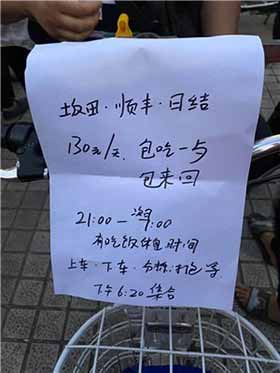 坂田·顺丰·日结
130元/天.包吃一与
包来回
21:00—潮9:00
有吃饭休息时间
上车·下车·分拣·打包等
下午6:20集合